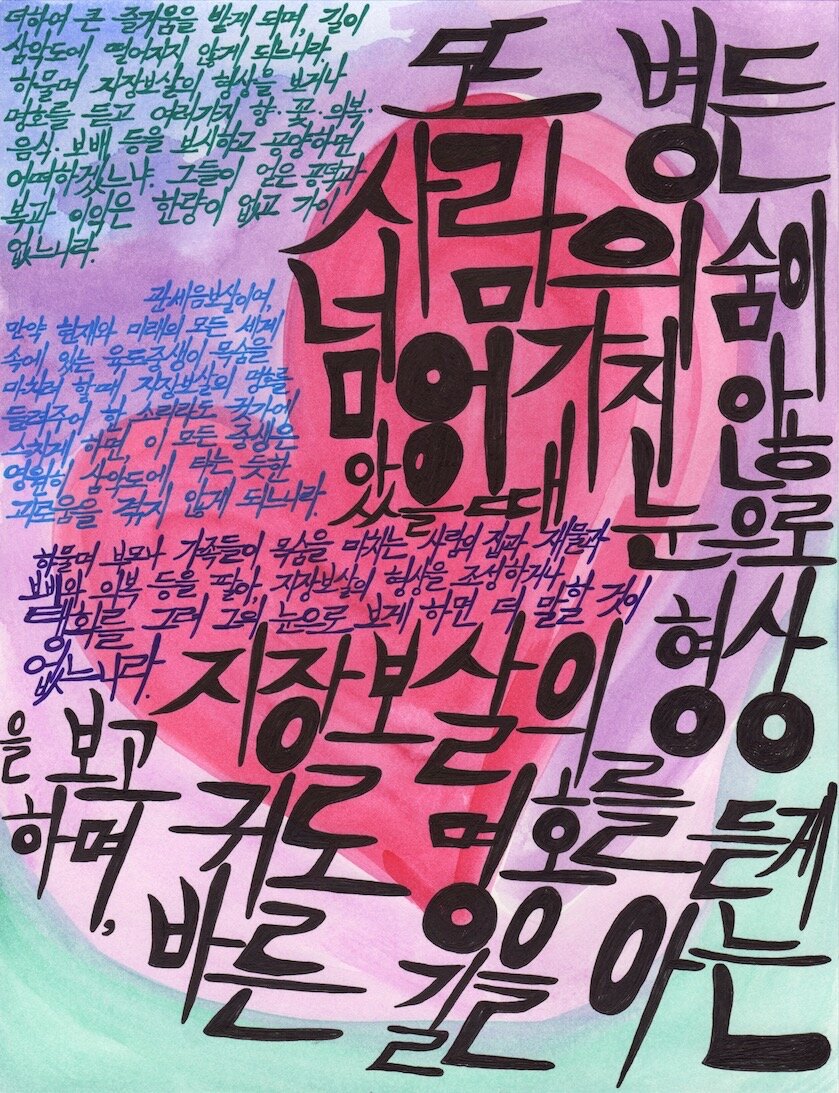 더하여 큰 즐거움을 받게 되며, 길이
삼악도에 떨어지지 않게 되느니라.
하물며 지장보살의 형상을 보거나
명호를 듣고 여러가지 향·꽃·의복·
음식·보배 등을 보시하고 공양하면
어떠하겠느냐. 그들이 얻은 공덕과
복과 이익은 한량이 없고 가이
없느니라.
관세음보살이여,
만약 현재와 미래의 모든 세계
속에 있는 육도중생이 목숨을
마치려 할때 지장보살의 명호를
들려주어 한 소리라도 귓가에
스치게 하면, 이 모든 중생은
영원히 삼악도에 타는 듯한
괴로움을 겪지 않게 되느니라.
하물며 부모나 가족들이 목숨을 마치는 사람의 집과 재물과
보배와 의복 등을 팔아, 지장보살의 형상을 조성하거나
탱화를 그려 그의 눈으로 보게 하면 더 말할 것이
없느니라.
또 병든
사람의 숨이
넘어가지 않
았을때 눈으로
지장보살의 형상
을 보고
하며, 귀로 명호를 듣게
바른 길을 아는